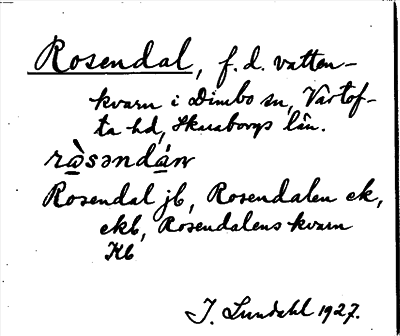 Rosendal, f.d. vatten-
kvarn i Dimbo sn, Vartof-
ta hd, Skaraborgs län.
Rosendal jb, Rosendalen ek,
ekb, Rosendalens kvarn
Kb
J. Lundahl 1927.